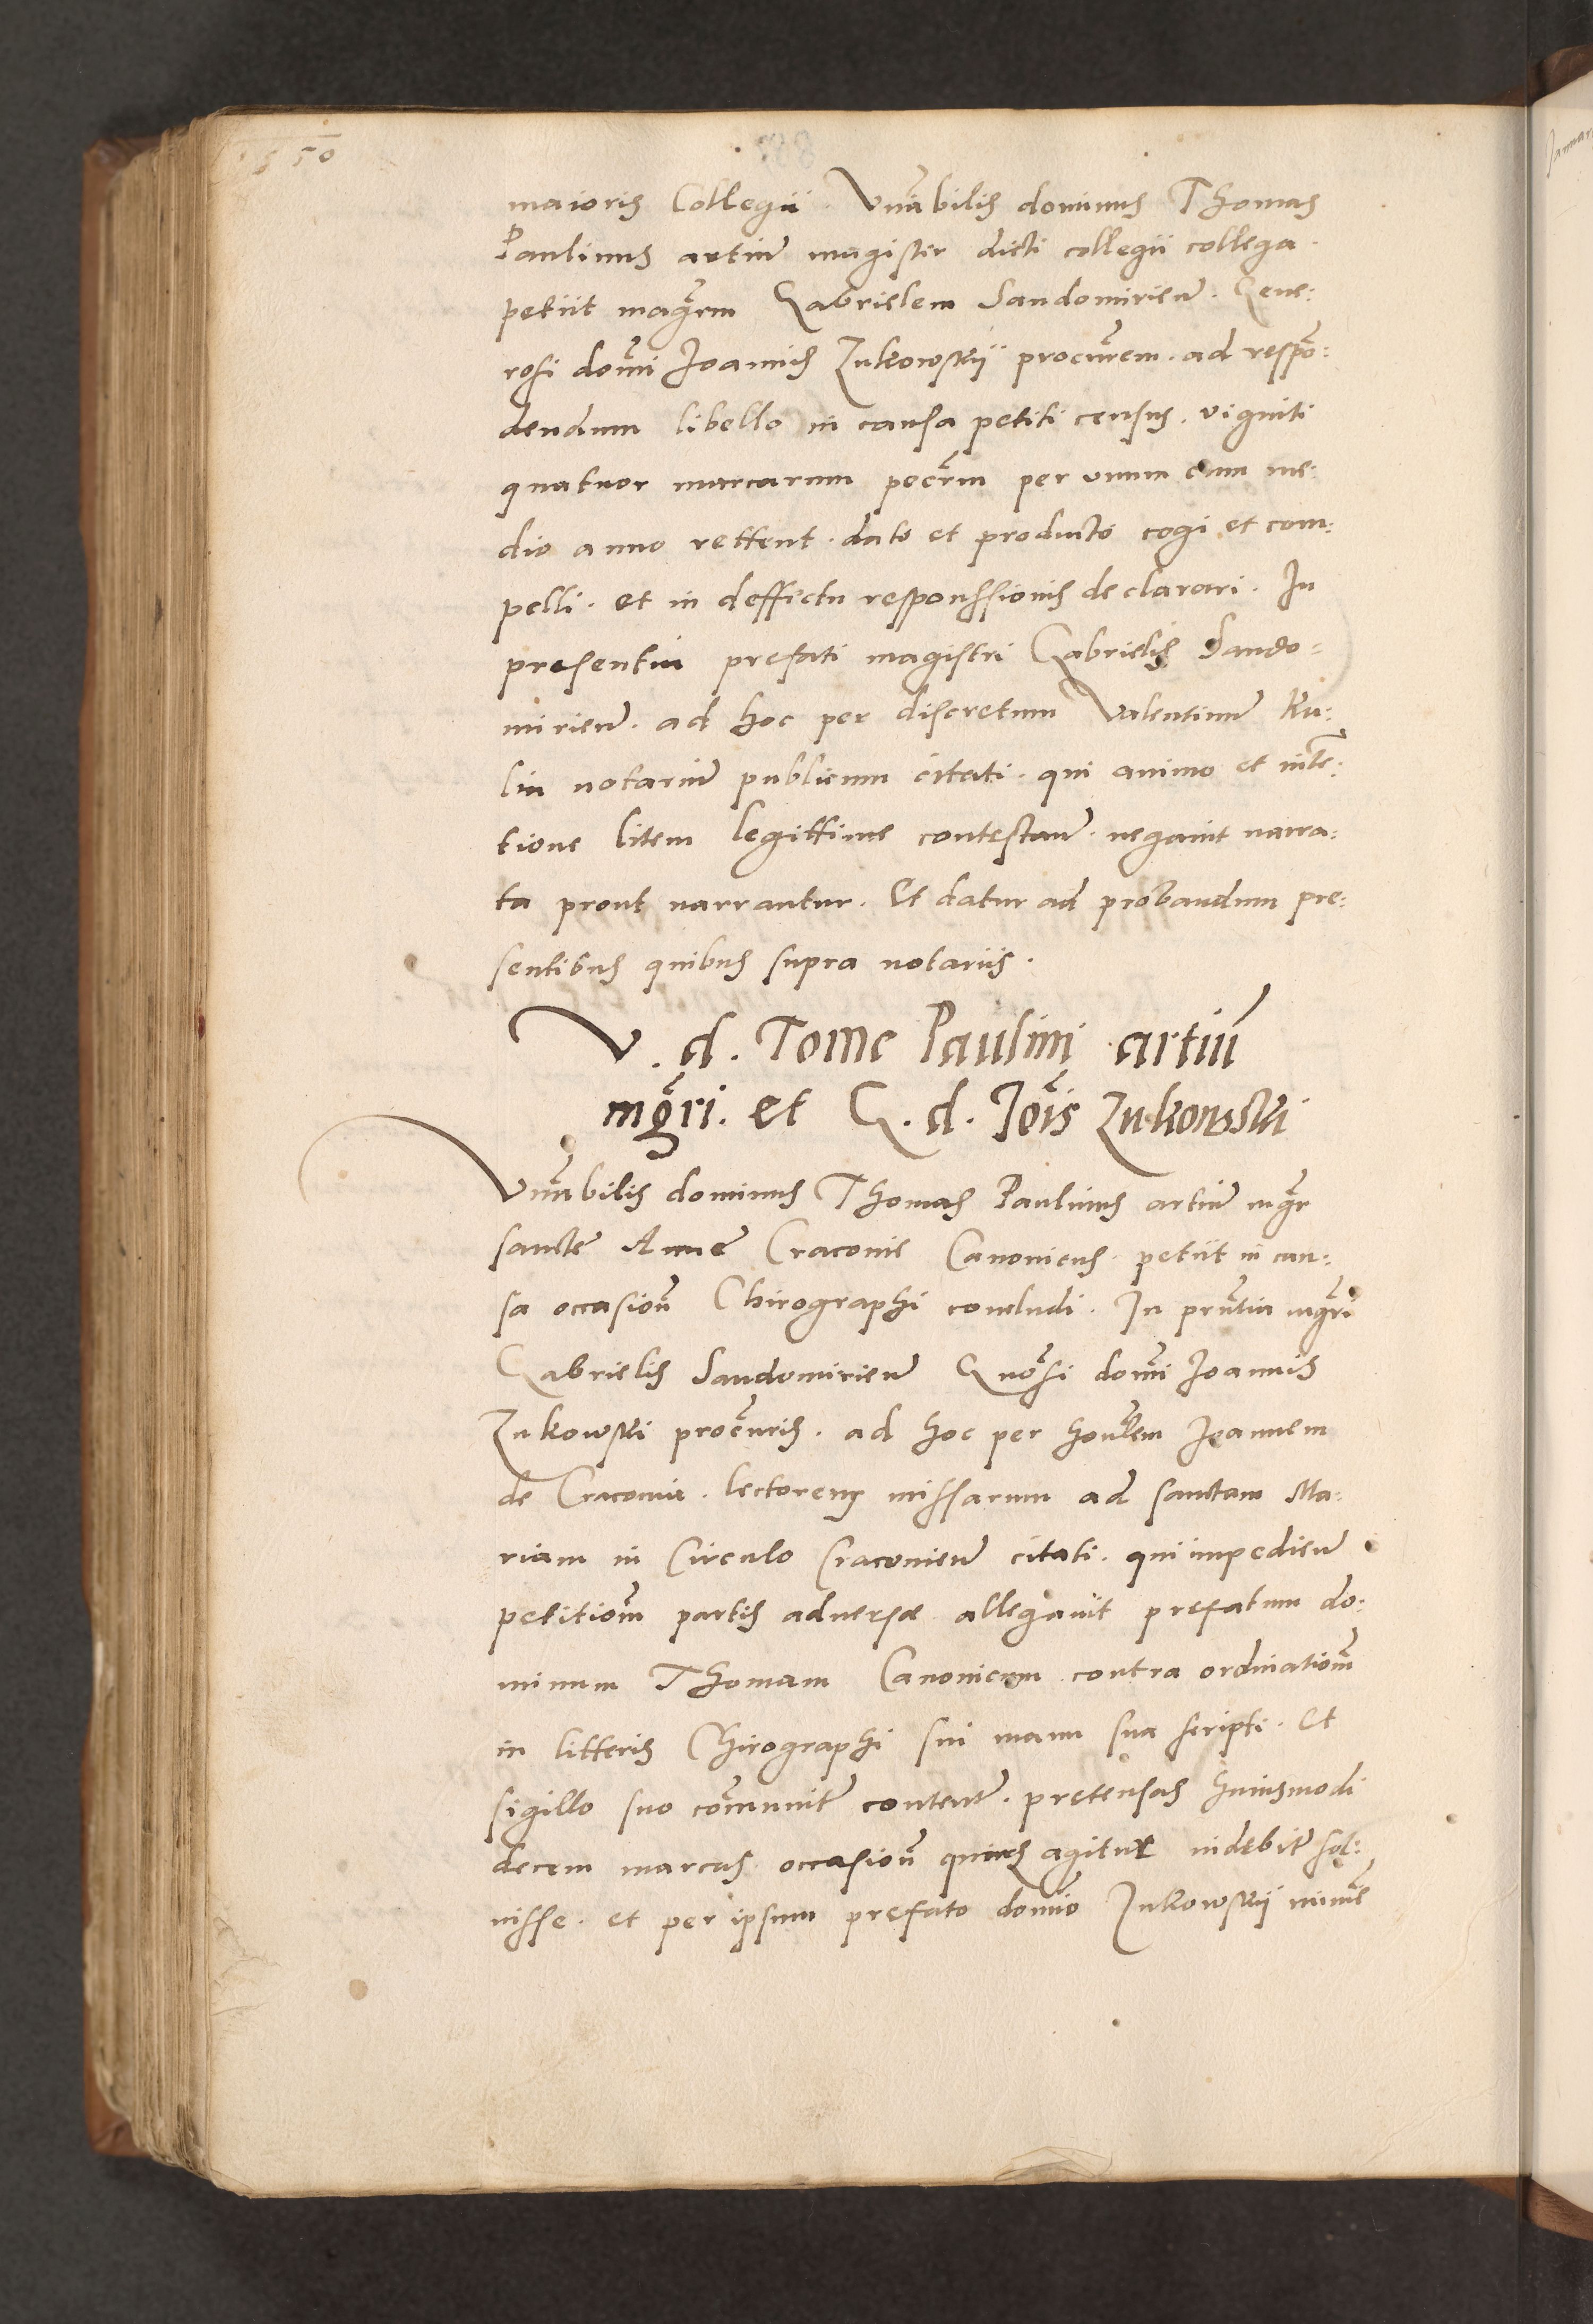 1550
maioris Collegii. Vnābilis dominus Thomas
Paulinus artiū magister dicti collegii collega.
petiit mag̃rm Gabrielem Sandomirieñ. Gene:
rosi dom̃i Joannis Zukowskÿ procurem. ad respō:
dendum libello in causa petiti census. viginti
quatuor marcarum pecc̃rm per vnum cum me:
dio anno rettent. dato et producto cogi et com:
pelli. et in deffectu responssionis declarari. In
presentia prefati magistri Gabrielis Sando=
mirieñ. ad hoc per discretum Valentinū Ku:
lin notariū publicum citati. qui animo et intē:
tione litem legittime contestañ. negauit narra:
ta prout narrantur. Et datur ad probandum pre:
sentibus quibus supra notariis.
V. d. Tome Paulini artiū
mg̃ri. et G. d. Jōis Zukowski
Vnābilis dominus Thomas Paulinus artiū mg̃r
sancte Anne Cracouie Canonicus. petiit in cau:
sa occasioñ Chirographi concludi. In pñtia mg̃ri
Gabrielis Sandomirieñ Gnōsi dom̃i Joannis
Zukowski procuris. ad hoc per honlem Joannem
de Cracouia. lectorem missarum ad sanctam Ma:
riam in Circulo Cracouieñ citati. qui impedieñ
petitiōm partis aduerse allegauit prefatum do:
minum Thomam Canonicum contra ordinatiōm
in litteris Chirographi sui manu sua scripti. Et
sigillo suo cōmunitt contentt. pretensas huiusmodi
decem marcas occasioñ quarum agitur indebitt sol:
uisse. et per ipsum prefato domīo Zukowskÿ minime